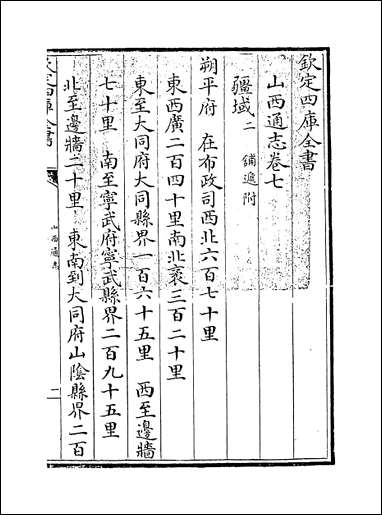 欽定四庫全書
山西通志卷七
疆域二 鋪遞附
朔平府 在布政司西北六百七十里
東西廣二百四十里南北袤三百二十里
東至大同府大同縣界一百六十五里 西至邊牆
七十里 南至寧武府寧武縣界二百九十五里
北至邊牆二十里 東南到大同府山陰縣界二百
欽定四庫全書
山西通志